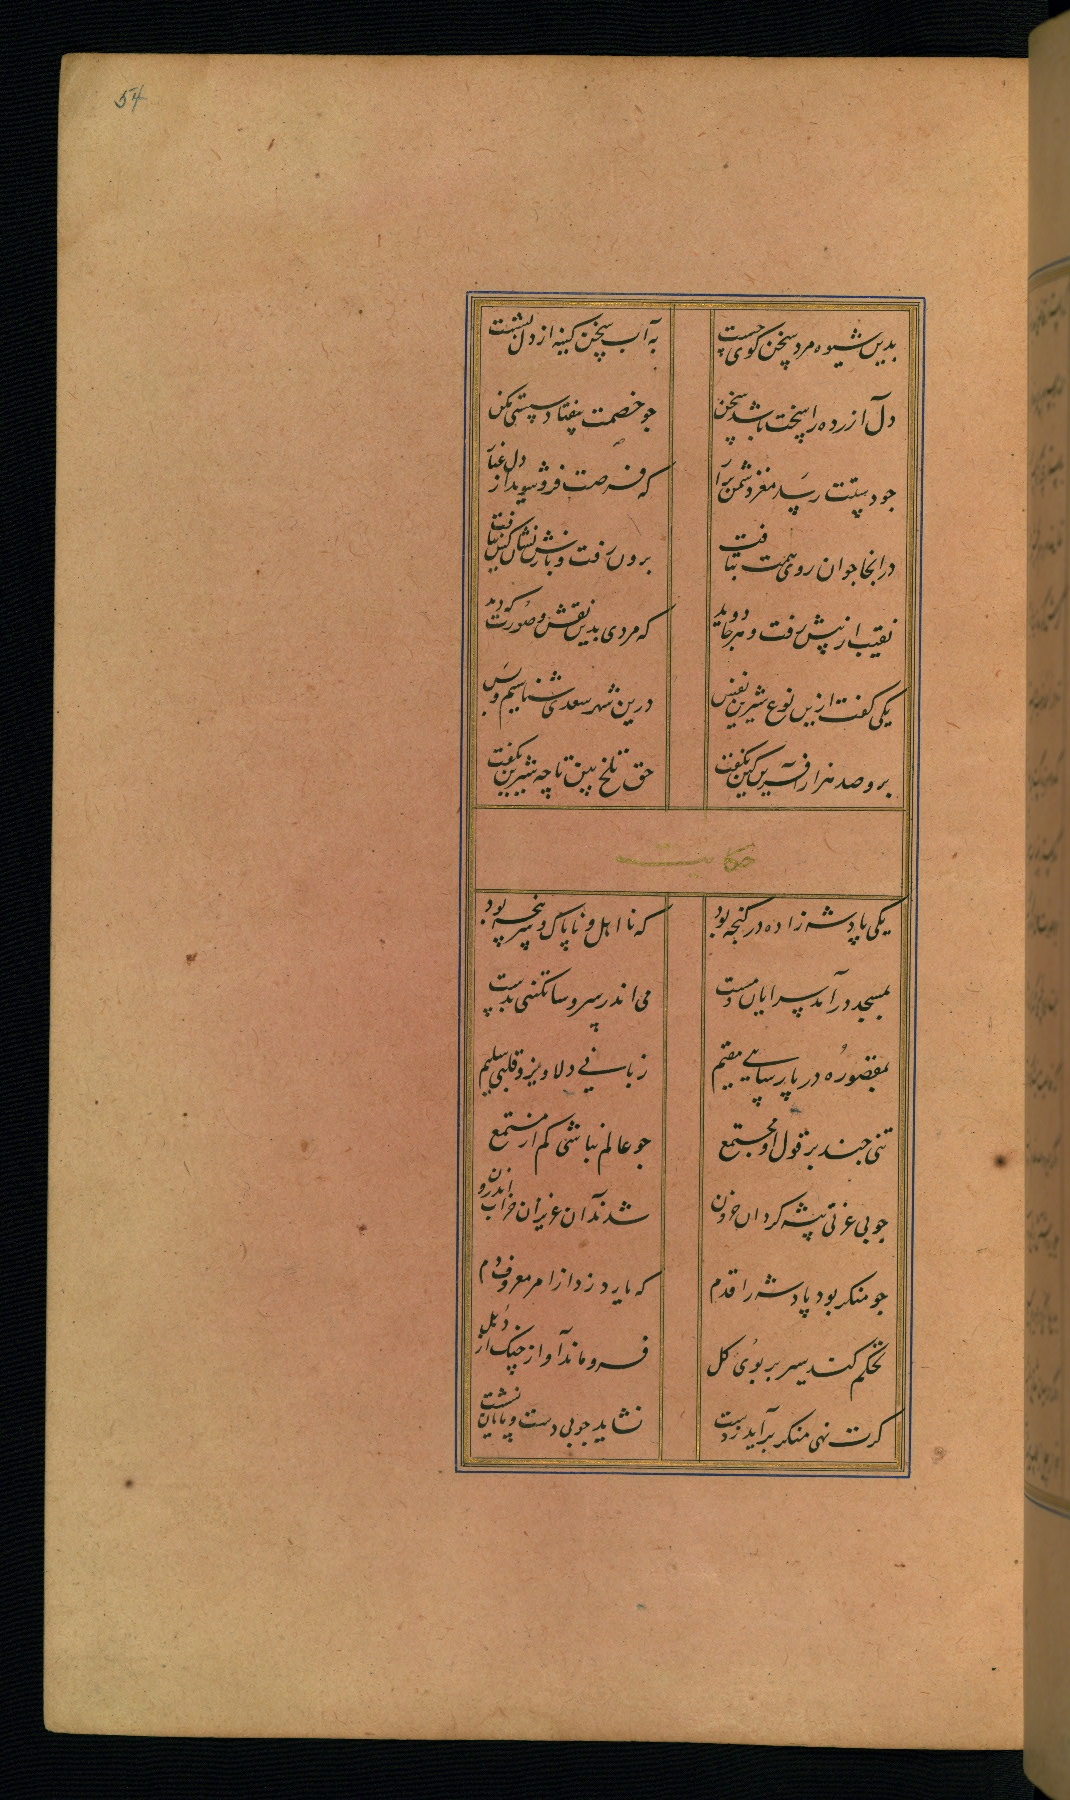 54
بدین شیوه مرد سخن گوی چست به آب سخن کینه از دل بشست
دل آزرده را سخت باشد سخن چو خصمت بیفتاد سستی مکن
چو دستت رسد مغز دشمن برآر که فرصت فروشوید از دل غبار
در آنجا جوان روی همت بتافت برون رفت و بازش نشان کس نیافت
نقیب از پیش رفت و هر جا دوید که مردی بدین نقش و صورت که دید
یکی گفت ازین نوع شیرین نفس درین شهر سعدی شناسیم و بس
برو صد هزار آفرین کین بگفت حق تلخ بین تا چه شیرین بگفت
حکایت
یکی پادشه زاده در گنجه بود که نااهل و ناپاک و سرپنجه بود
بمسجد درآمد سرایان و مست می اندر سر و ساتکنی بدست
بمقصوره در پارسایی مقیم زبانی دلاویز و قلبی سلیم
تنی چند بر قول او مجتمع چو عالم نباشی کم از مستمع
چو بی عزتی پیشه کرد آن حرون شدند آن عزیزان خراب اندرون
چو منکر بود پادشه را قدم که یارد زد از امر معروف دم
تحکم کند سیر بر بوی گل فرو ماند آواز چنگ از دهل
گرت نهی منکر برآید ز دست نشاید چو بی دست و پایان نشست